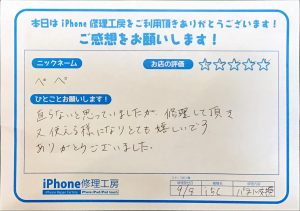 本日は iPhone 修理工房をご利用頂きありがとうございます!
ご感想をお願いします!
ニックネーム
お店の評価
ペペ
ひとことお願いします!
直らないと思っていましたが、修理して頂き
又使える様になりとても嬉しいです
ありがとうございました。
iPhone修理工房
9/9
15C
バッテリー交換